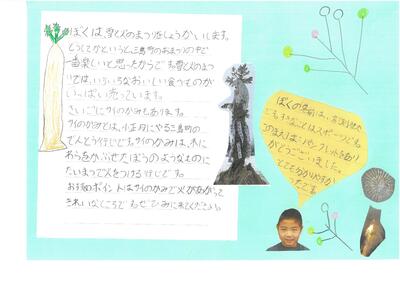 ぼくは雪と火のまつりをしょうかいします。
どうしてかというと三島町のおまつりの中で
一番楽しいと思ったからです。雪と火のまつ
りでは、いろいろなおいしい食べものが
いっぱい売っています。
さいごにサイのかみもあります。
サイのかみとは、小正月にやる三島町の
でんとう行じです。サイのかみは、木に
わらをかぶせたぼうのようなものに
たいまつで火をつける行じです。
お気のポイントはサイのかみで火があがって
きれいなところです。ぜひみに来てください。
ぼくの名前は、
すきなことはスポーツです。
パンフレットをあり
がとうございました。
とてもわかりやすか
ったです。